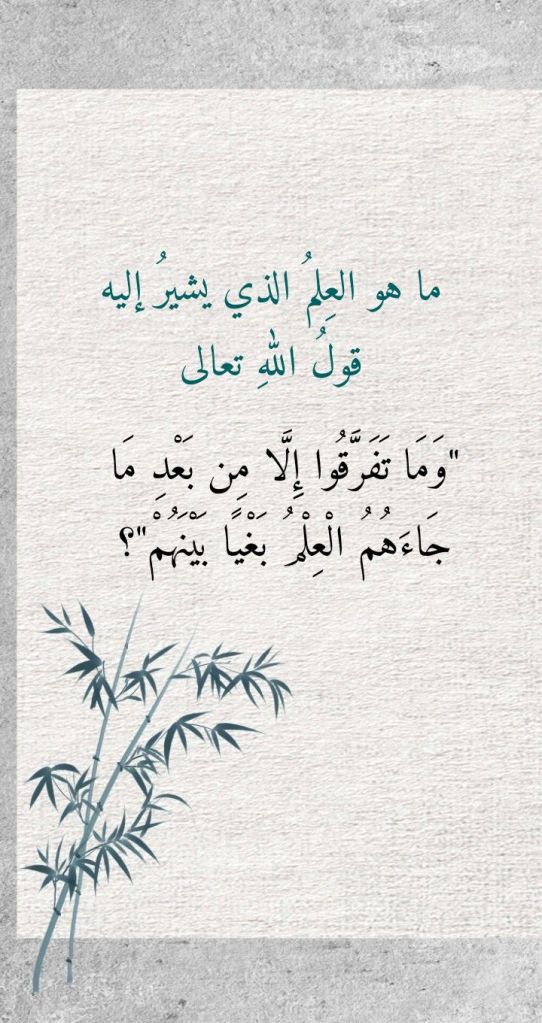 ما هو العِلمُ الذي يشيرُ إليه
قولُ اللهِ تعالى
"وَمَا تَفَرَّقُوا إِلَّا مِن بَعْدِ مَا
جَاءَهُمُ الْعِلْمُ بَغْيًا بَيْنَهُمْ"؟